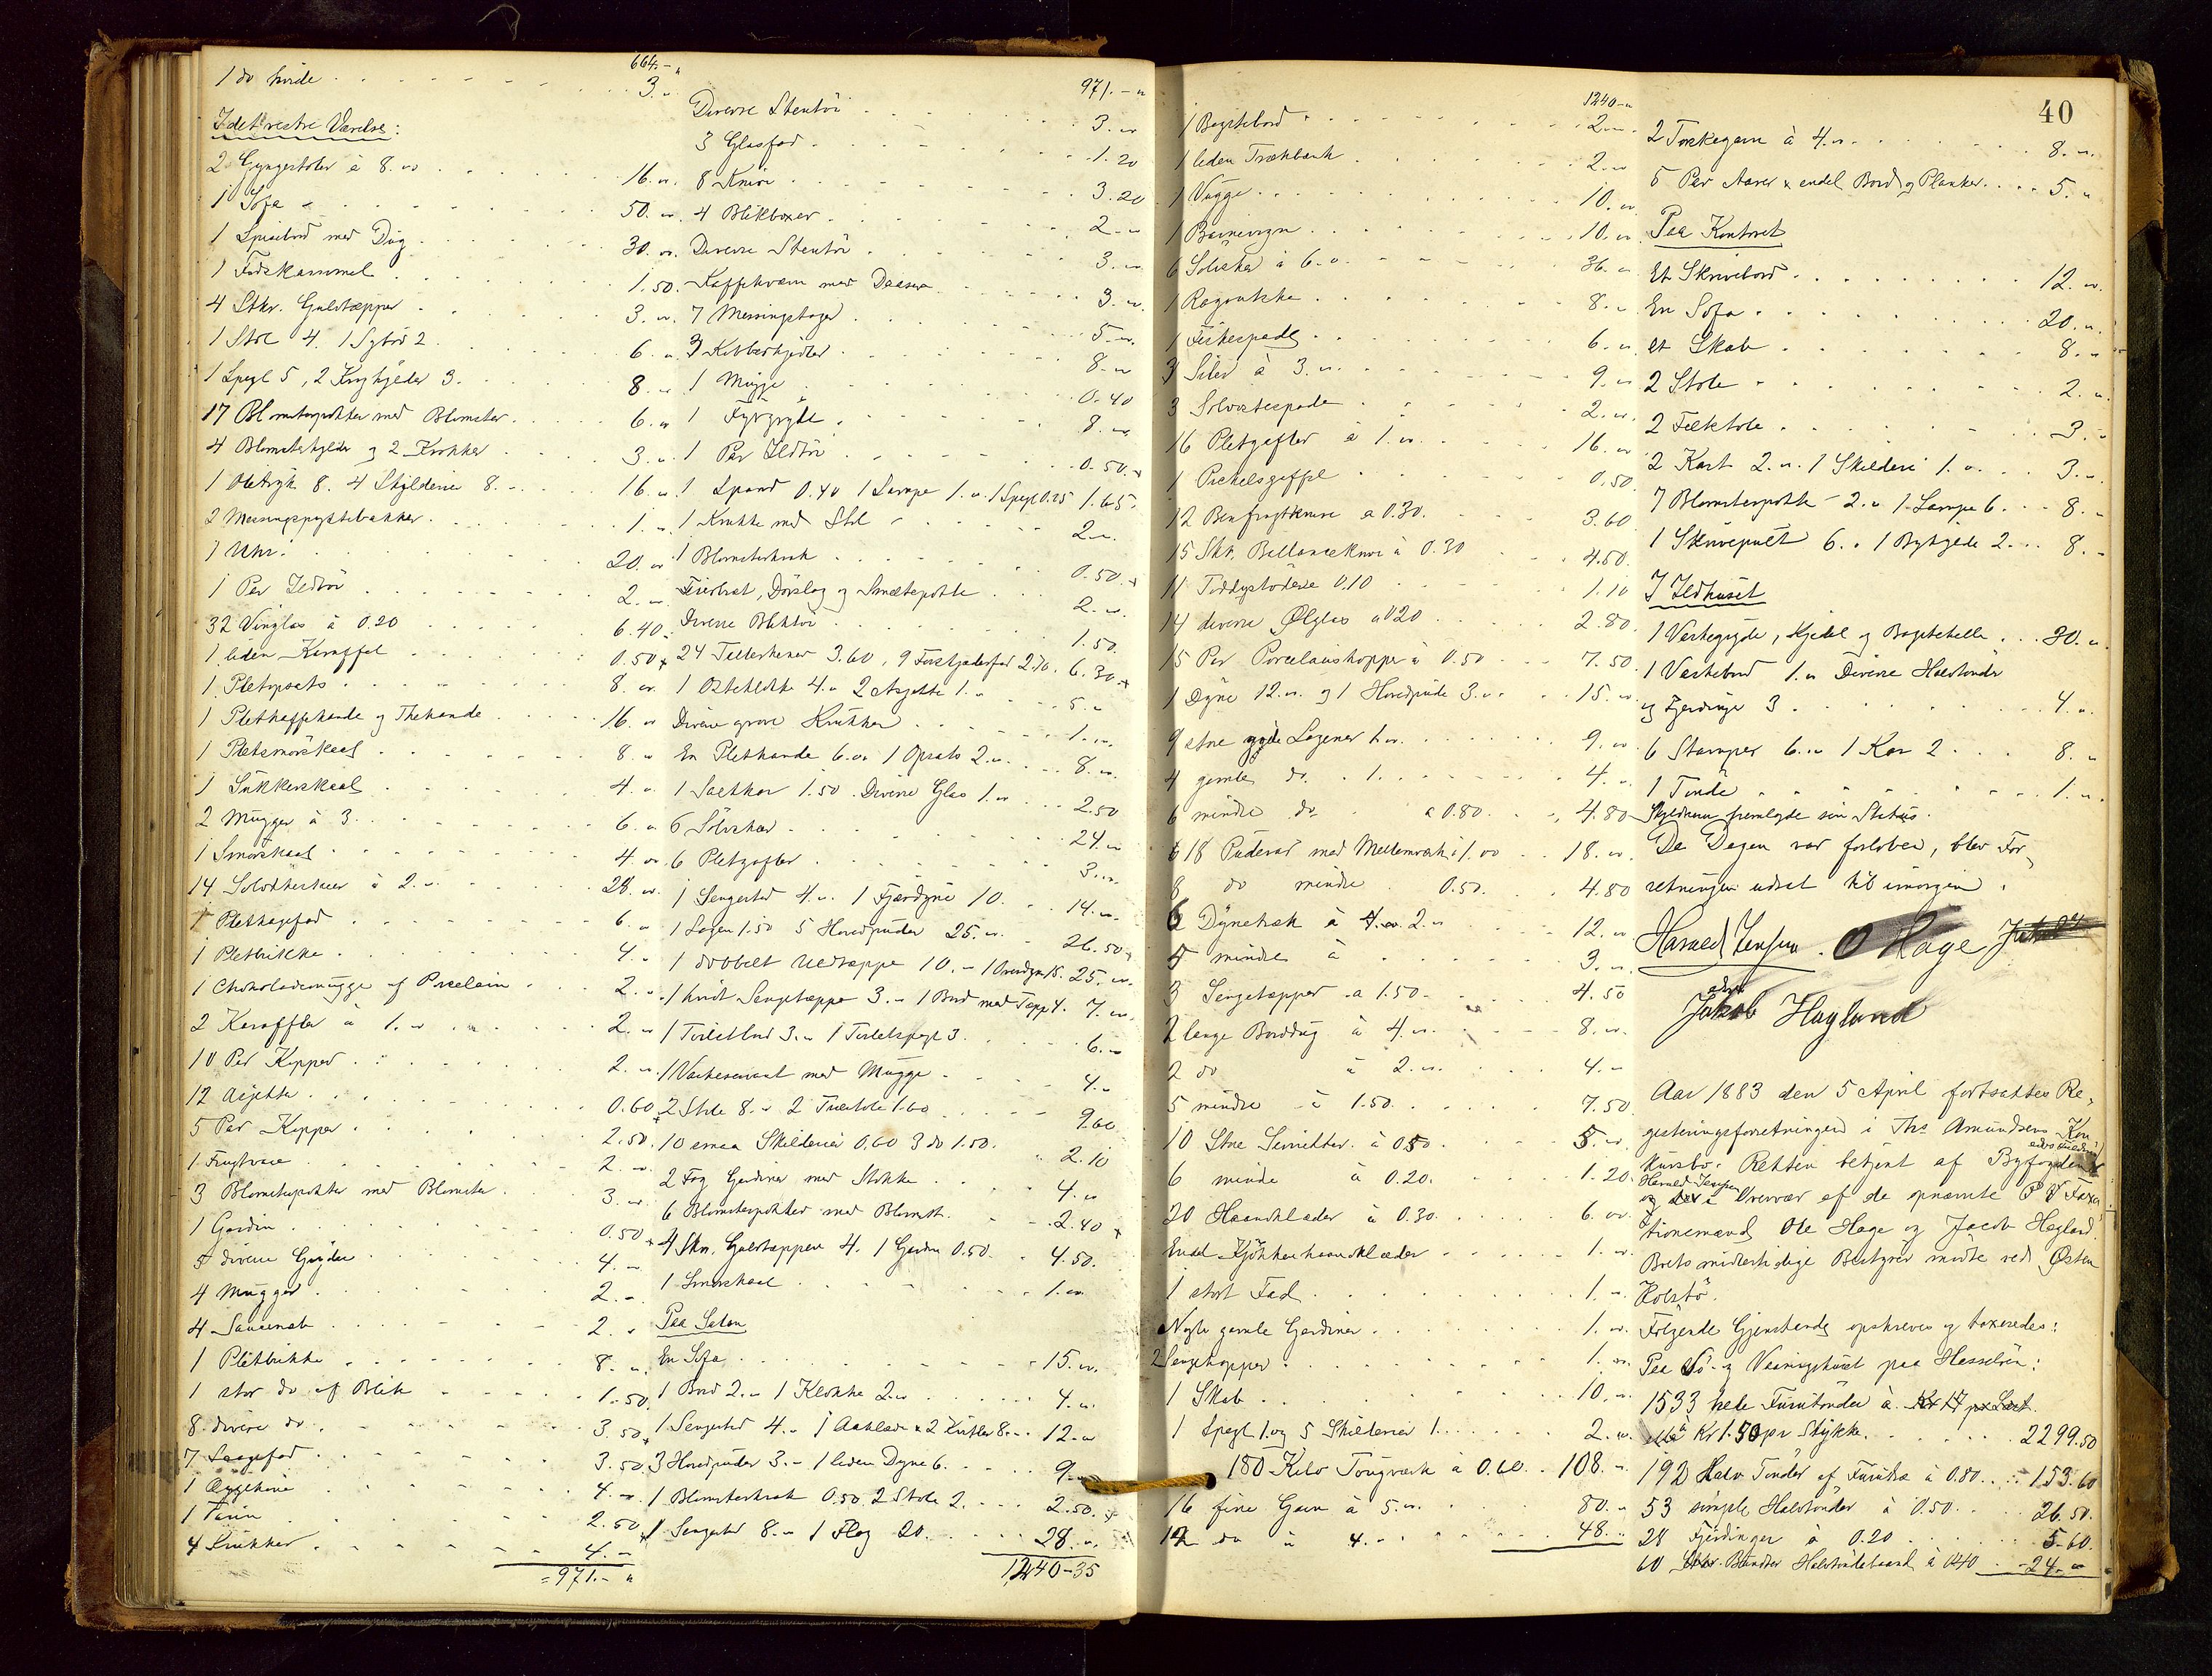 664.-"
1 do hvide . . . 3."
I det vestre Værelse:
2 Gyngestoler à 8." . . . 16."
1 Sofa . . . 50."
1 Spisebord med Dug . . . 30."
1 Fodskammel . . . 1.50.
4 Stkr. Gulvtæpper . . . 3."
1 Stol 4. 1 Sybord 2 . . . 6."
1 Spegl 5, 2 Knyhylder 3. . . . 8."
17 Blomsterpotter med Blomster . . . 6."
4 Blomsterhylder og 2 Krukker . . . 3."
1 Olietryk 8. 4 Skilderier 8. . . . 16."
2 Messingspyttebakker . . . 1."
1 Uhr . . . 20."
1 Par Ildtöi . . . 2."
32 Vinglas à 0.20 . . . 6.40
1 liden Karaffel . . . 0.50
1 Pletopsats . . . 8."
1 Pletkaffekande og Thekande . . . 16."
1 Pletsmörskaal . . . 8."
1 Sukkerskaal . . . 4."
2 Mugger à 3. . . . 6."
1 Smörskaal . . . 4."
14 Sölvtheskeer à 2." . . . 28."
1 Pletkagefad . . . 6."
1 Pletbrikke . . . 4."
1 Chokolademugge af Porcelain . . . 2."
2 Karaffler à 1." . . . 2."
10 Par Kopper . . . 2."
12 Asjetter . . . 0.60
5 Par Kopper . . . 2.50.
1 Frugtvase . . . 2."
3 Blomsterpotter med Blomster . . . 3."
1 Gardin . . . 0.50
5 diverse Gryder . . . 4."
4 Mugger . . . 2."
4 Saucenab . . . 2."
1 Pletbrikke . . . 8."
1 stor do af Blik . . . 1.50
8 diverse do . . . 3.50
7 Stegefad . . . 3.50
1 Æggekone . . . 4."
1 Terin . . . 2.50
4 Krukker . . . 4."
= 971.- "
971.-"
Diverse Stentöi . . . 3."
3 Glasfad . . . 1.20
8 Knive . . . 3.20
4 Blikboxer . . . 2."
Diverse Stentöi . . . 3."
Kaffekværn med Daaser . . . 3."
7 Messingstager . . . 5."
3 Kobberkjedler . . . 8."
1 Mugge . . . 0.40
1 Fyrgryde . . . 8."
1 Par Ildtöi . . . 0.50.
1 Spand 0.40 1 Lampe 1." 1 Spegl 0.25 1.65
1 Krukke med Stel . . . 2."
1 Blomsterkrak . . . 0.50.
Fierbrat, Dörslag og Smeltepotte . . . 2."
Diverse Bliktöi . . . 1.50.
24 Tallerkener 3.60, 9 Forskjæderfad 2.70. 6.30
1 Osteklokke 4." 2 Asjetter 1." . . . 5."
Diverse grove Krukker . . . 1."
En Pletkande 6." 1 Opsats 2." . . . 8."
1 Saltkar 1.50 Diverse Glas 1." . . . 2.50
6 Sölvskeer . . . 24."
6 Pletgafler . . . 3."
1 Sengested 4." 1 Fjærdyne 10. . . . 14."
1 Lagen 1.50 5 Hovedpuder 25." . . . 26.50
1 dobbelt Uldtæppe 10." 1 Overdyne 15. 25."
1 hvidt Sengetæppe 3." 1 Bord med Tæppe 4. 7."
1 Toiletbord 3." 1 Toiletspegl 3. . . . 6."
1 Vaskeservant med Mugge . . . 4."
2 Stole 8." 2 Træstole 1.60 . . . 9.60
10 smaa Skilderier 0.60 3 do 1.50. . . . 2.10
2 Fag Gardiner med Stokke . . . 4."
6 Blomsterpotter med Blomst. . . . 2.40
4 Skr. Gulvtæpper 4. 1 Gardin 0.50 . . . 4.50.
1 Smörskaal . . . 1."
Paa Salen
En Sofa . . . 15."
1 Bord 2." 1 Klokke 2." . . . 4."
1 Sengested 4." 1 Aaklæde & 2 Kister 8." . . . 12."
3 Hovedpuder 3." 1 liden Dyne 6. . . . 9."
1 Blomsterkrak 0.50. 2 Stole 2. . . . 2.50.
1 Sengested 8." 1 Flag 20. . . . 28."
1240-35
1240-"
1 Bagstebord . . . 2."
1 liden Trækbænk . . . 2."
1 Vugge . . . 10."
1 Barnevogn . . . 10."
6 Sölvskeer à 6." . . . 36."
1 Ragoutske . . . 8."
1 Fiskespade . . . 6."
3 Siler à 3." . . . 9."
3 Solvostespade . . . 2."
16 Pletgafler à 1." . . . 16."
1 Pickelsgaffel . . . 0.50
12 Benfrugtknive a 0.30. . . . 3.60
15 Skr. Ballanceknive à 0.30 . . . 4.50.
11 Toddystödere 0.10 . . . 1.10
14 diverse Ølglas a 0.20 . . . 2.80.
15 Par Porcelainskopper à 0.50 . . . 7.50.
1 Dyne 12." og 1 Hovedpude 3." . . . 15."
9 store gode Lagener 1." . . . 9."
4 gamle do. . 1. . . . 4."
6 mindre do. a 0.80. . . . 4.80
18 Pudevar med Mellemværk à 1.00 . . . 18."
8 do mindre 0.50. . . . 4.80
6 Dynetræk à 2." . . . 12."
5 mindre à . . . 3."
3 Sengetæpper a 1.50 . . . 4.50
2 lange Borddug à 4." . . . 8."
2 do à 2." . . . 4."
5 mindre à 1.50. . . . 7.50
10 Store Servietter à 0.50 . . . 5."
6 mindre à 0.20. . . . 1.20.
20 Haandklæder à 0.30. . . . 6."
Endel Kjökkenhaandklæder . . . 1."
1 stort Fad . . . 1."
Nogle gamle Gardiner . . . 1."
2 Sengetæpper . . . 1."
1 Skab . . . 10."
1 Spegl 1. og 5 Skilderier 1. . . . 2."
180 Kilo Tougværk à 0.60. . . 108."
16 fine Garn à 5." . . . 80."
12 do à 4." . . . 48."
40
2 Torskegarn à 4." . . . 8."
5 Par Aarer & endel Bord og Planker. . . . 5."
Paa Kontoret
Et Skrivebord . . . 12."
En Sofa . . . 20."
et Skab . . . 8."
2 Stole . . . 2."
2 Feltstole . . . 3."
2 Kart 2." 1 Skilderi 1." . . . 3."
7 Blomsterpotte 2." 1 Lampe 6. . . . 8."
1 Skrivepult 6." 1 Boghylde 2. . . . 8."
I Ildhuset
1 Vaskegryde, Kjedel og Bagstehelle . . . 30."
1 Vaskebord 1." Diverse Halvtönder
og Fjerdinger 3 . . . 4."
6 Stamper 6." 1 Kar 2 . . . 8."
1 Tönde . . . 1."
Skyldneren fremlagde sin Status.
Da Dagen var forløben, blev For-
retningen udsat til imorgen.
Harald Jensen. O Hage
Jakob Hagland
Aar 1883 den 5 April fortsattes Re-
gisteringsforretningen i Ths Amundsens Kon-
kursbo. Retten betjent af Byfogdens
Harald Jensen
og i Overvær af de opnævnte Taxa-
tionsmænd Ole Hage og Jacob Hagland.
Boets midlertidige Bestyrer mødte ved Østen
Holstö.
Følgende Gjenstande opskreves og taxeredes:
Paa Sö- og Vaaningshuset paa Hasselöen:
1533 hele Furutönder à
à Kr 1.50 pr Stykke . . . 2299.50
192 Halv Tönder af Furu à 0.80 . . . 153.60
53 simple Halvtönder à 0.50 . . . 26.50.
28 Fjerdinger à 0.20 . . . 5.60.
60 Bundter Halvtöndebaand à 0.40 . . . 24."